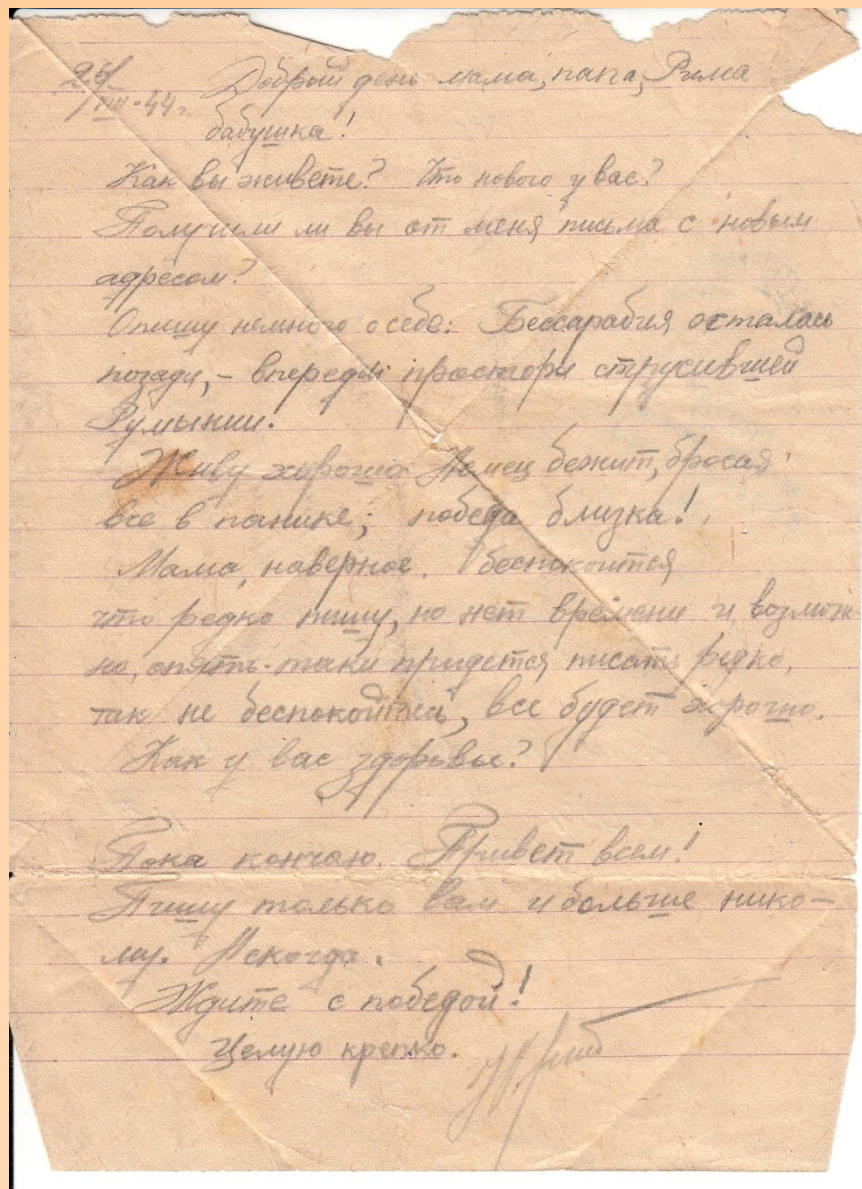 26/VIII-44 г. Добрый день мама, папа, Рима
бабушка!
Как вы живете? Что нового у вас?
Получили ли вы от меня письма с новым
адресом?
Опишу немного о себе: Бессарабия осталась
позади, - впереди просторы струсившей
Румынии.
Живу хорошо. Немец бежит, бросая
все в панике; победа близка!
Мама, наверное, беспокоится
что редко пишу, но нет времени и возмож
но, опять-таки придется писать редко,
так не беспокойтесь, все будет хорошо.
Как у вас здоровье?
Пока кончаю. Привет всем!
Пишу только вам и больше нико-
му. Некогда.
Ждите с победой!
Целую крепко.